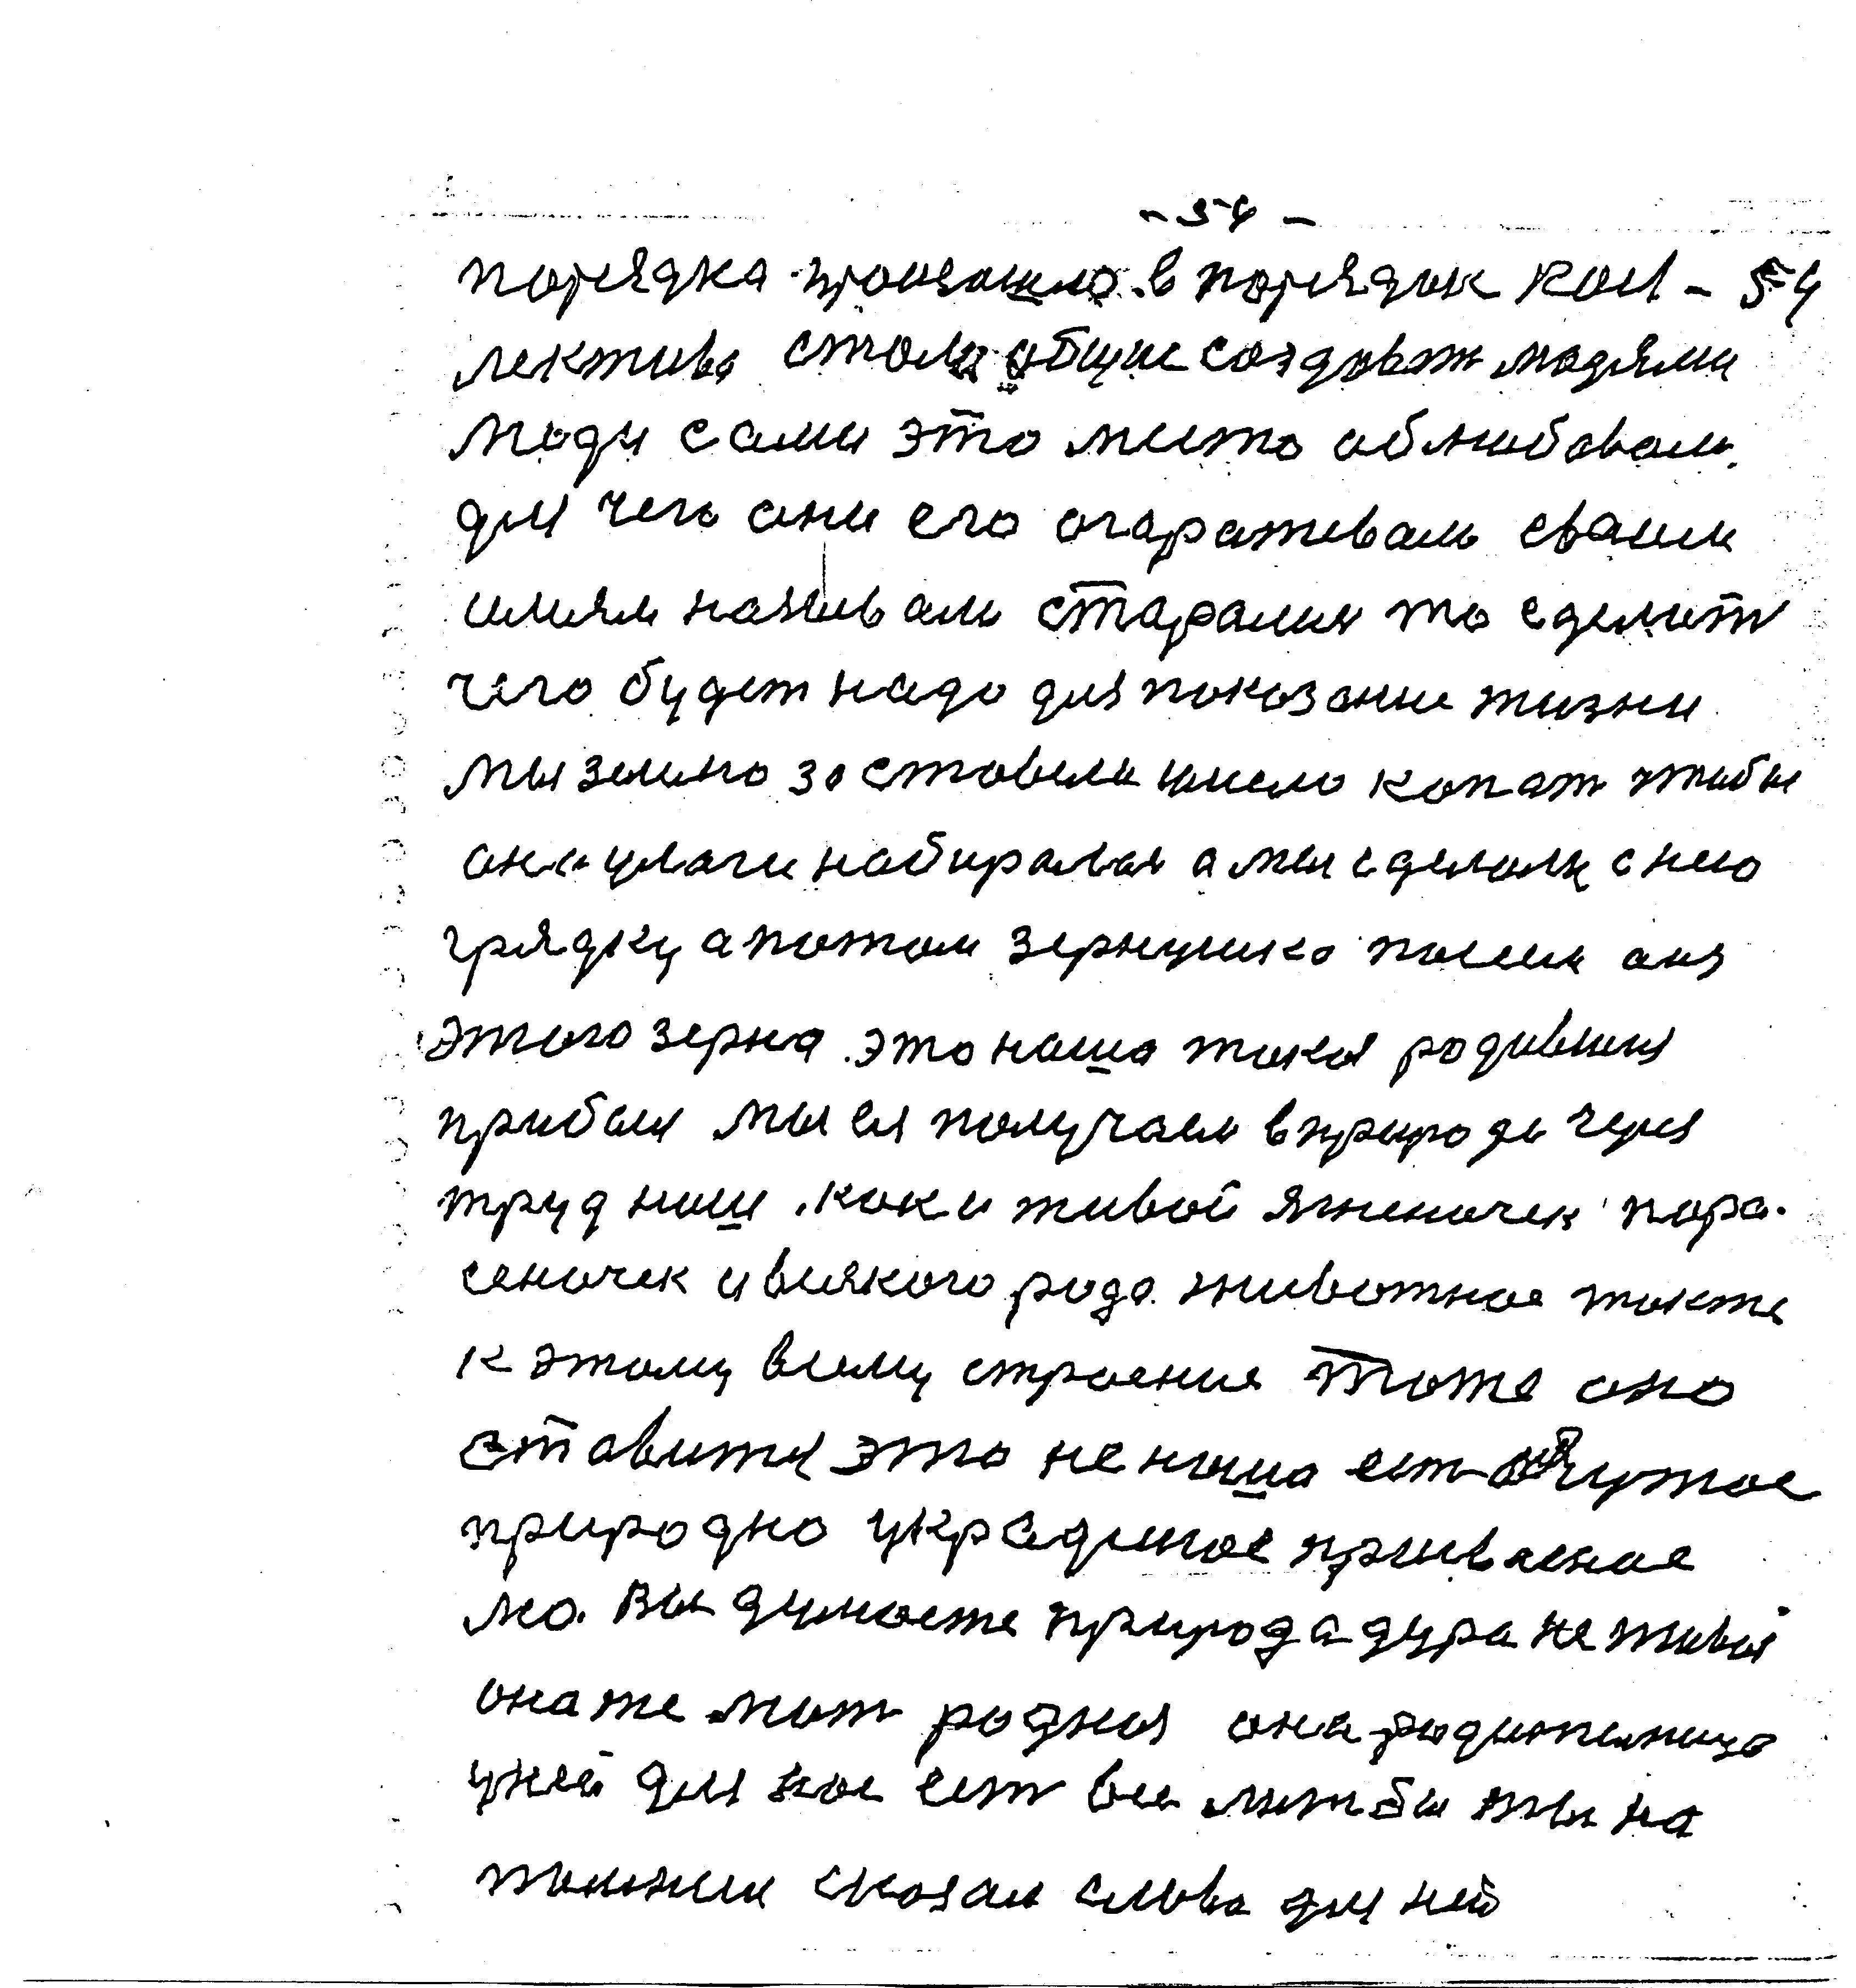 - 54 -
порядка произошло в порядок кол - 54
лектива стали общие создават людями
люди сами это место облюбовали.
для чего они его огаративали своим
имиям называли старалия то сделат
чего будет надо для показание жизни
мы землю заставили умело копат чтобы
она улаги набиралая а мы сделали с нею
грядку а потом зернушко посеели
этого зерна. это наша такая родившия
прибыл мы ея получаем в природе через
труд наш. как и живой ягненочек пора.
сеночек и всякого рода животное также
к этому всему строение тоже оно
ставится это не наша ест чужое
природно украденое присвоеное
мо. Вы думаете природа дура не живая
она же мат родная она родителница
у ней для нас ест все лиш бы ты на
сказал слова для ней